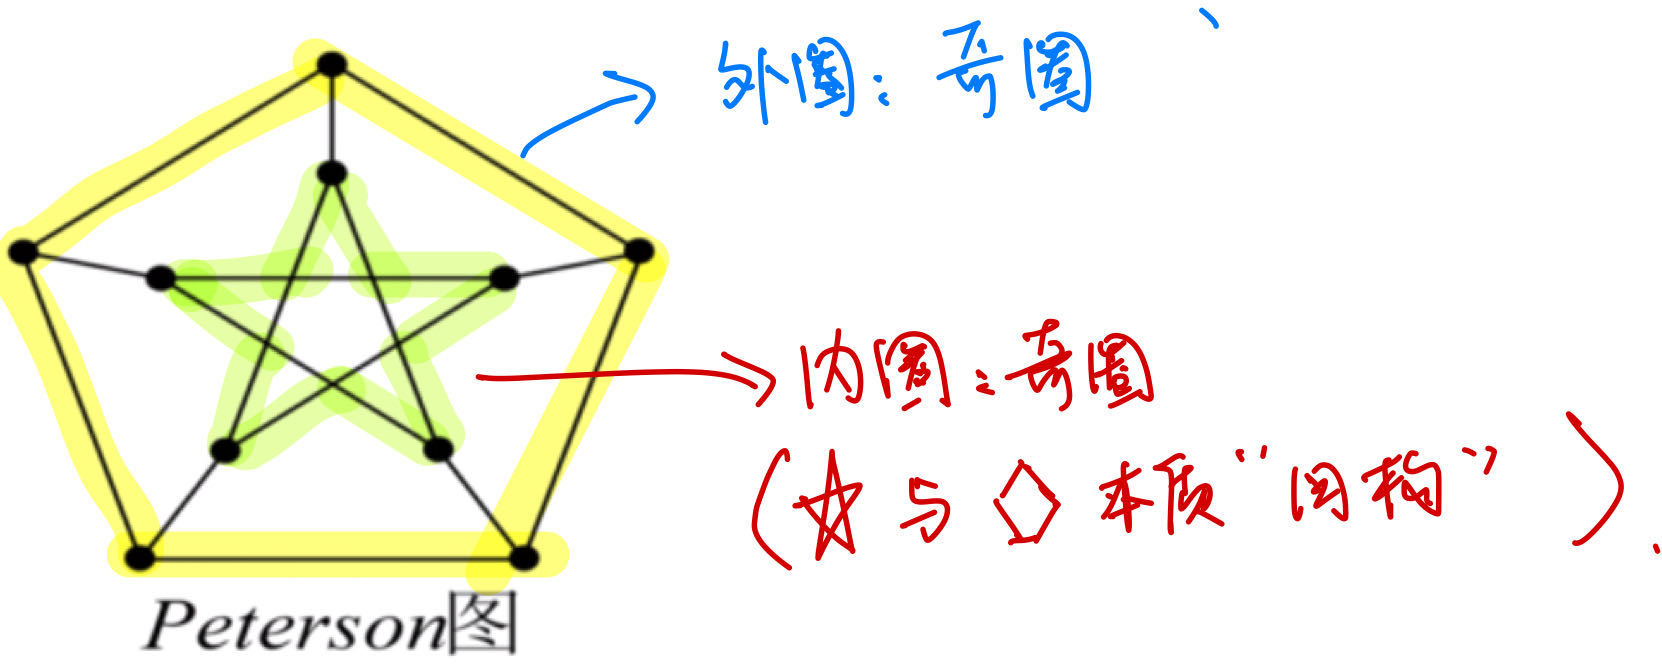 外圈：奇圈
内圈：奇圈
(☆与⬠本质“同构”).
Peterson图